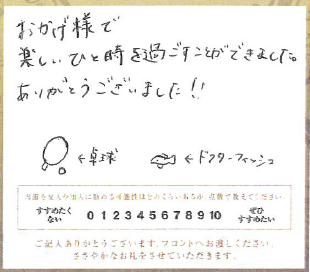 おかげ様で
楽しいひと時を過ごすことができました。
ありがとうございました!!
←卓球 ←ドクターフィッシュ
当館を友人や知人に勧める可能性はどのくらいあるか、点数で教えてください。
すすめたくない 0 1 2 3 4 5 6 7 8 9 10 ぜひすすめたい
ご記入ありがとうございます。フロントへお渡しください。
ささやかなお礼をさせていただきます。